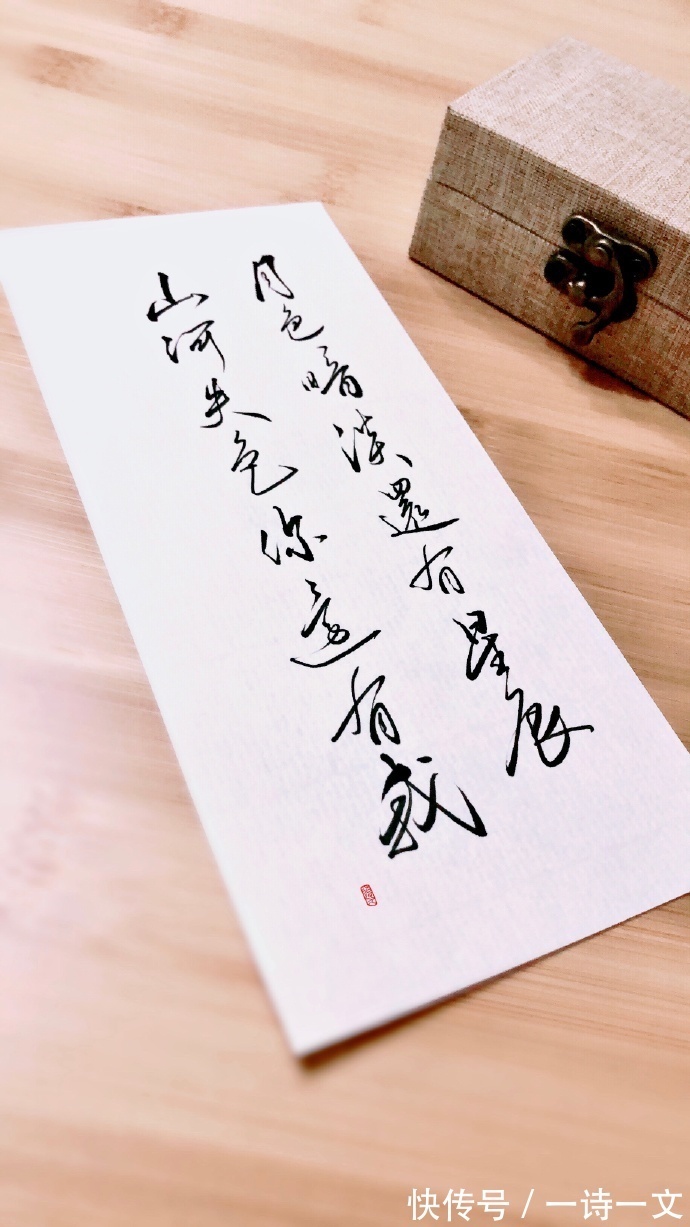 月色暗淡還有星辰
山河失色你還有我
快传号 / 一诗一文